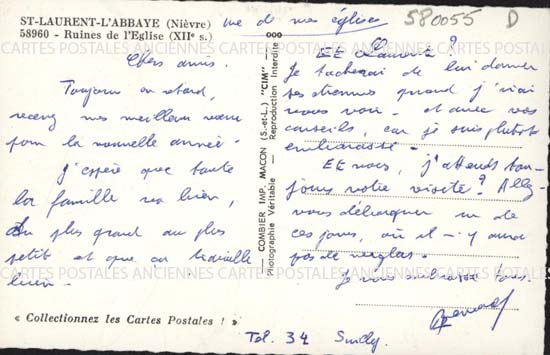 ST-LAURENT-L'ABBAYE (Nièvre)
58960 - Ruines de l'Eglise (XIIe s.)
vue d mes église
580055 D
Chers amis.
Toujours en retard,
recevez mes meilleurs vœux
pour la nouvelle année.
J'espère que toute
la famille va bien,
du plus grand au plus
petit et que on travaille
bien.
« Collectionnez les Cartes Postales ! »
COMBIER IMP. MACON (S.-et-L.) "CIM"
Photographie Véritable - Reproduction Interdite
Et Laurent ?
Je tacherai de lui donner
ses étrennes quand j'irai
vous voir. et avec vos
conseils, car je suis plutot
embarassé.
Et nous, j'attends tou-
jours votre visite ? Allez-
vous débarquer un de
ces jours, où il n'y aura
pas de verglas.
Je vous embrasse tous.
Tel. 34 Suilly
CARTES POSTALES ANCIENNES